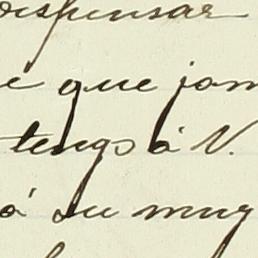 dispensar
e que jam
tengo á V.
á su muy